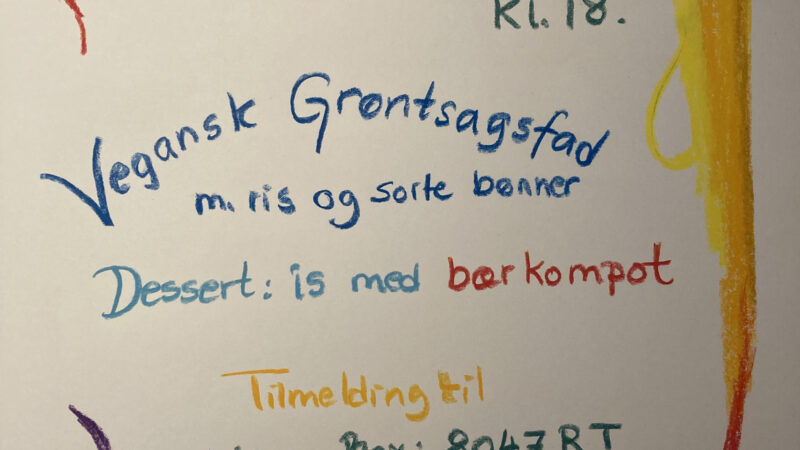 Kl. 18.
Vegansk Grøntsagsfad
m. ris og sorte bønner
Dessert: is med bærkompot
Tilmelding til
8047 RT